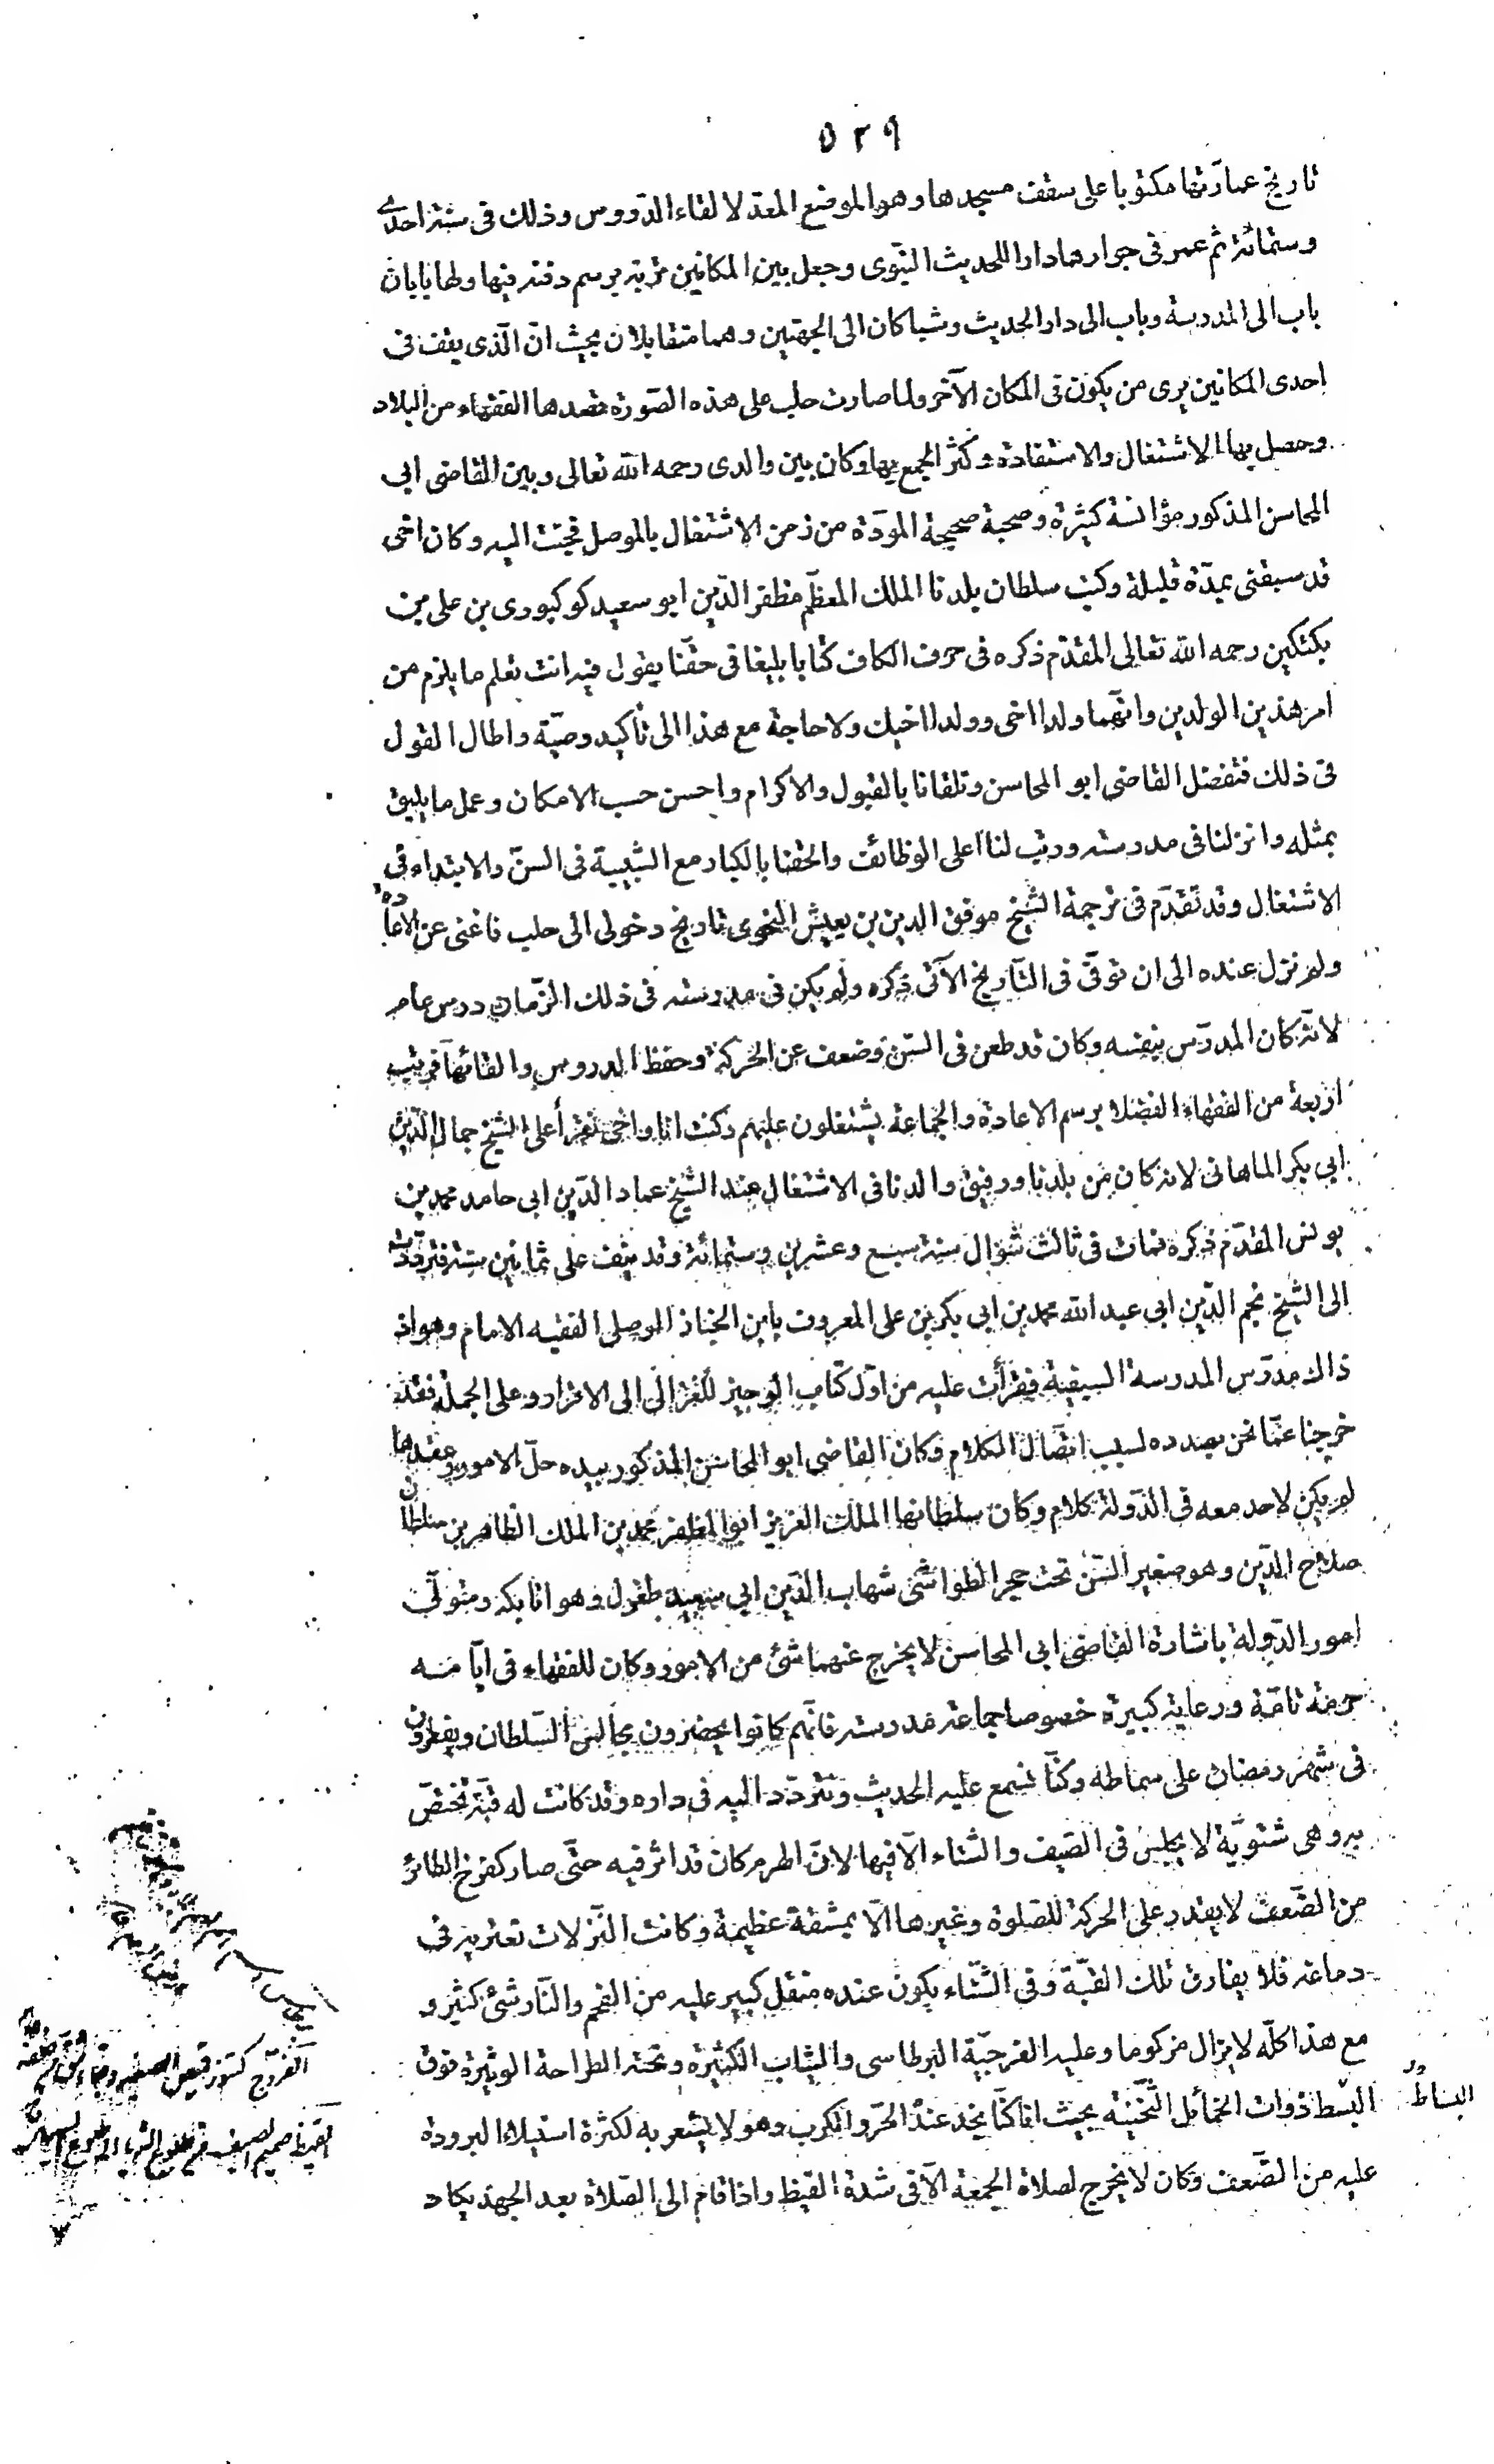 ٥٢٩
تاريخ عمارتها مكتوبا على سقف مسجدها وهو الموضع المعد لالقاء الدروس وذلك فى سنة احدى
وستمائة ثم عمر فى جوارها دارا للحديث النبوى وجعل بين المكانين تربة برسم دفنه فيها ولها بابان
باب الى المدرسة وباب الى دار الحديث وشباكان الى الجهتين وهما متقابلان بحيث انّ الّذى يقف فى
احدى المكانين يرى من يكون فى المكان الآخر ولما صارت حلب على هذه الصّورة قصدها الفقهاء من البلاد
وحصل بها الاشتغال والاستفادة وكثر الجمع بها وكان بين والدى رحمه الله تعالى وبين القاضى ابى
المحاسن المذكور مؤانسة كثيرة وصحبة صحيحة المودّة من زمن الاشتغال بالموصل فجئت اليه وكان اخى
قد سبقنى بمدّة قليلة وكتب سلطان بلدنا الملك المعظّم مظفر الدّين ابو سعيد كوكبورى بن على بن
بكتكين رحمه الله تعالى المقدّم ذكره فى حرف الكاف كتابا بليغا فى حقّنا يقول فيه انت تعلم ما يلزم من
امر هذين الولدين وانّهما ولدا اخى وولدا اخيك ولا حاجة مع هذا الى تأكيد وصيّة واطال القول
فى ذلك فتفضل القاضى ابو المحاسن وتلقانا بالقبول والاكرام واحسن حسب الامكان وعمل ما يليق
بمثله وانزلنا فى مدرسته ورتب لنا اعلى الوظائف والحقنا بالكبار مع الشبيبة فى السنّ والابتداء فى
الاشتغال وقد تقدّم فى ترجمة الشّيخ موفق الدين بن يعيش النحوى تاريخ دخولى الى حلب فاغنى عن الاعادة
ولم نزل عنده الى ان توفّى فى التّاريخ الآتى ذكره ولم يكن فى مدرسته فى ذلك الزّمان درس عام
لانّه كان المدرّس بنفسه وكان قد طعن فى السّن وضعف عن الحركة وحفظ الدروس والقائها فرتب
اربعة من الفقهاء الفضلا برسم الاعادة والجماعة يشتغلون عليهم وكنت انا واخى نقرأ على الشيخ جمال الدّين
ابى بكر الماهانى لانه كان من بلدنا ورفيق والدنا فى الاشتغال عند الشّيخ عماد الدّين ابى حامد محمد بن
يونس المقدّم ذكره فمات فى ثالث شوال سنة سبع وعشرين وستمائة وقد نيف على ثمانين سنة فتردّدت
الى الشّيخ نجم الدّين ابى عبد الله محمد بن ابى بكر بن على المعروف بابن الخباز الموصلى الفقيه الامام وهو اذ
ذاك مدرّس المدرسة السيفية فقرأت عليه من اوّل كتاب الوجيز للغزالى الى الاقرار وعلى الجملة فقد
خرجنا عمّا نحن بصدده لسبب اتّصال الكلام وكان القاضى ابو المحاسن المذكور بيده حلّ الامور وعقدها
لم يكن لاحد معه فى الدّولة كلام وكان سلطانها الملك العزيز ابو المظفر محمد بن الملك الظاهر بن سلطان
صلاح الدّين وهو صغير السّن تحت حجر الطواشى شهاب الدّين ابى سعيد طغرل وهو اتابكه ومتولّى
امور الدّولة باشارة القاضى ابى المحاسن لا يخرج عنهما شئ من الامور وكان للفقهاء فى ايّامه
حرمة تامّة ورعاية كبيرة خصوصا جماعة مدرسته فانّهم كانوا يحضرون مجالس السّلطان ويفطرون
فى شهر رمضان على سماطه وكنّا نسمع عليه الحديث ونتردّد اليه فى داره وقد كانت له قبّة تختصّ
به وهى شتويّة لا يجلس فى الصّيف والشّتاء الّا فيها لانّ الهرم كان قد اثر فيه حتّى صار كفرخ الطائر
من الضّعف لا يقدر على الحركة للصّلوة وغيرها الّا بمشقة عظيمة وكانت النّزلات تعتريه فى
دماغه فلا يفارق تلك القبّة وفى الشّتاء يكون عنده منقل كبير عليه من الفحم والنّار شئ كثير و
مع هذا كلّه لا يزال مزكوما وعليه الفرجيّة البرطاسى والثياب الكثيرة وتحته الطراحة الوثيرة فوق
البسط ذوات الخمائل الثّخينة بحيث انّا كنّا نجد عنده الحرّ والكرب وهو لا يشعر به لكثرة استيلاء البرودة
عليه من الضّعف وكان لا يخرج لصلاة الجمعة الّا فى شدة القيظ واذا قام الى الصّلاة بعد الجهد يكاد
البساط